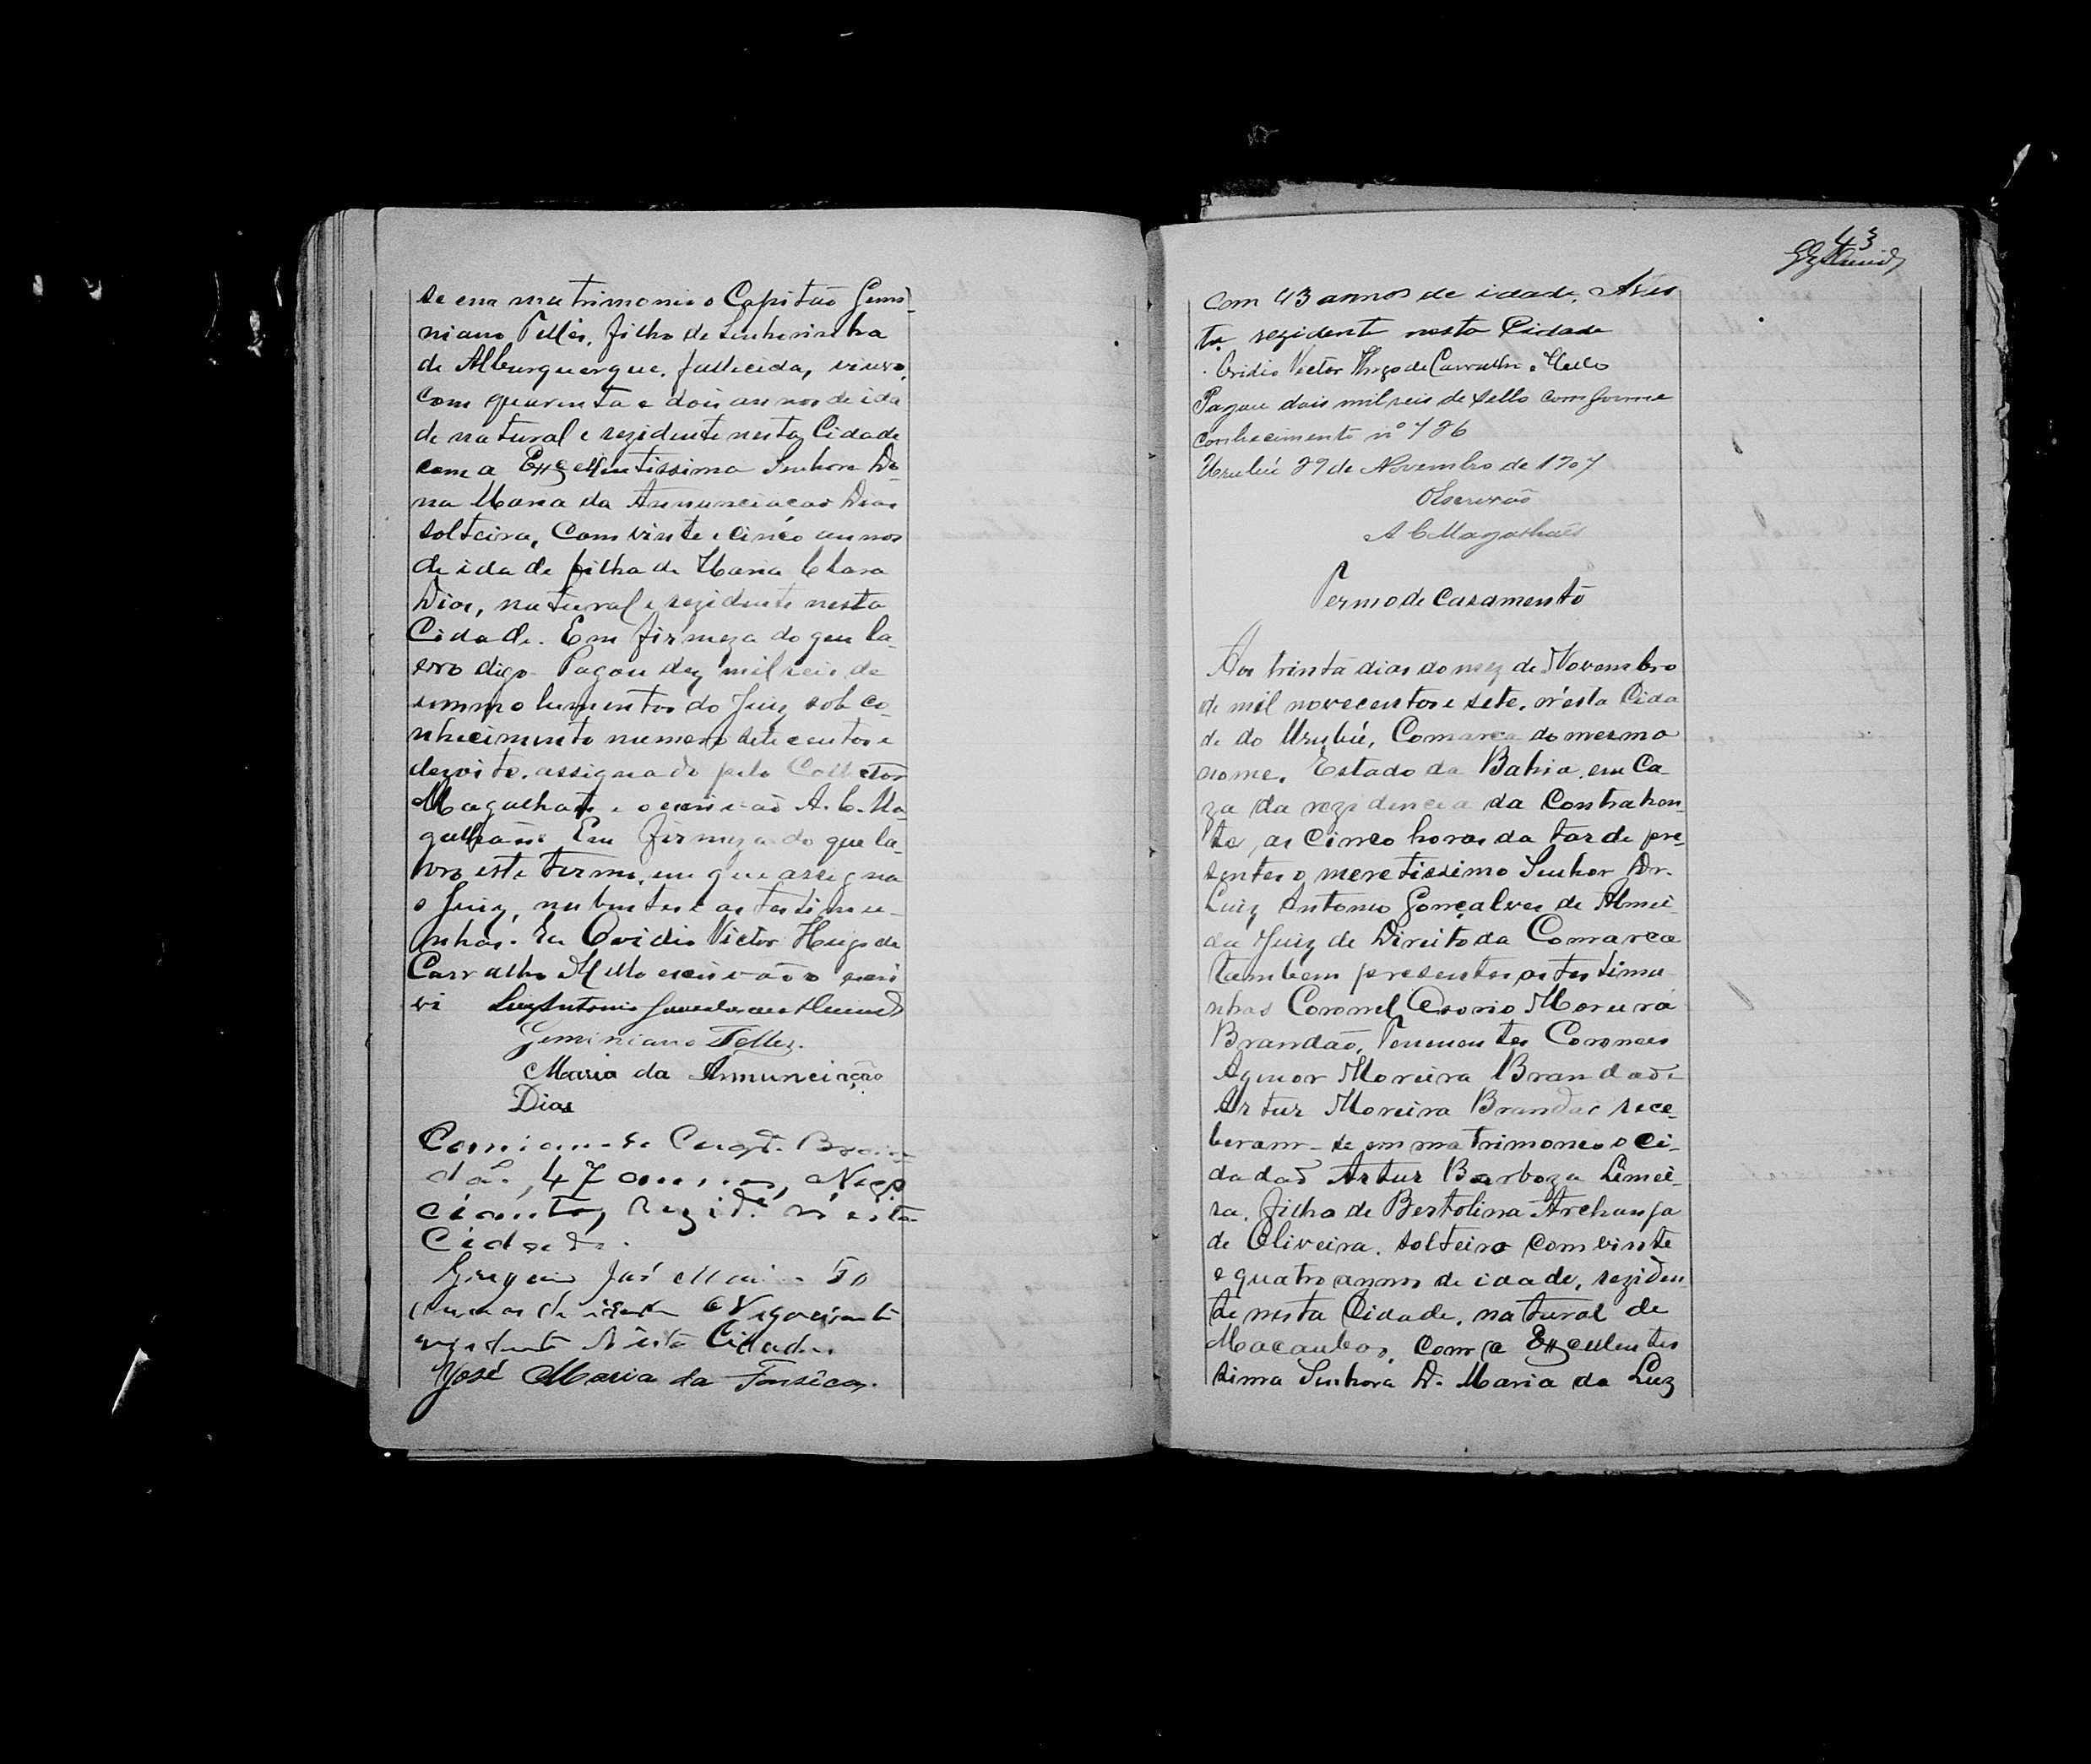 se em matrimonio o Capitão Gemi-
niano Telles, filho de Senhorinha
de Alburquerque, fallecida, viuvo,
com quarenta e dois annos de ida
de natural e rezidente nesta Cidade
com a Exçellentissima Senhora Do-
na Maria da Annunciacao Dias
solteira, com vinte e cinco annos
de idade filha de Maria Clara
Dias, natural e rezidente nesta
Cidade. Em firmeza do que la-
vro digo Pagou dez mil reis de
emmolumentos do Juiz sob co-
nhecimento numero sete centos e
dezoito, assignado pelo Collector
Magalhães e o escrivaõ A. C. Ma-
galhães Em firmeza do que la-
vro este termo, em que assigna
o Juiz, nubentes e as testimu-
nhas. Eu Ovidio Victor Hugo de
Carvalho Mello escrivaõ o escri
vi Luiz Antonio Gonçalves de Almeida
Geminiano Telles.
Maria da Annunciação
Dias
47 annos, Nego
ciante, Rezid.e n'esta
Cidade.
José 50
annos de idade Negociante
rezidente N'esta Cidade
José Maria da Fonsêca.
43
com 43 annos de idade,
rezidente nesta Cidade
Ovidio Victor Hugo de Carvalho Mello
Pagou dois mil reis de sello comforme
conhecimento nº 786
Urubú 29 de Novembro de 1907
O Escrivão
A C Magalhaẽs
Termo de Casamento
Aos trinta dias do mez de Novembro
de mil novecentos e sete, n'esta Cida
de do Urubú, Comarca do mesmo
nome, Estado da Bahia, em Ca-
za da rezidencia da Contrahen-
te, as cinco horas da tarde pre-
sentes o meretissimo Senhor Dr.
Luiz Antonio Gonçalves de Almei-
da Juiz de Direito da Comarca
tambem presentes as testimu-
nhas Coronel Osorio Moreira
Brandaõ, Tenentes Coroneis
Agenor Moreira Brandaõ e
Artur Moreira Brandaõ rece-
beram-se em matrimonio o ci-
dadaõ Artur Barboza Limei-
ra, filho de Bertolina Archanja
de Oliveira, solteiro com vinte
e quatro annos de idade, reziden
te nesta Cidade, natural de
Macaubas, com a Exçellentes
sima Senhora D. Maria da Luz